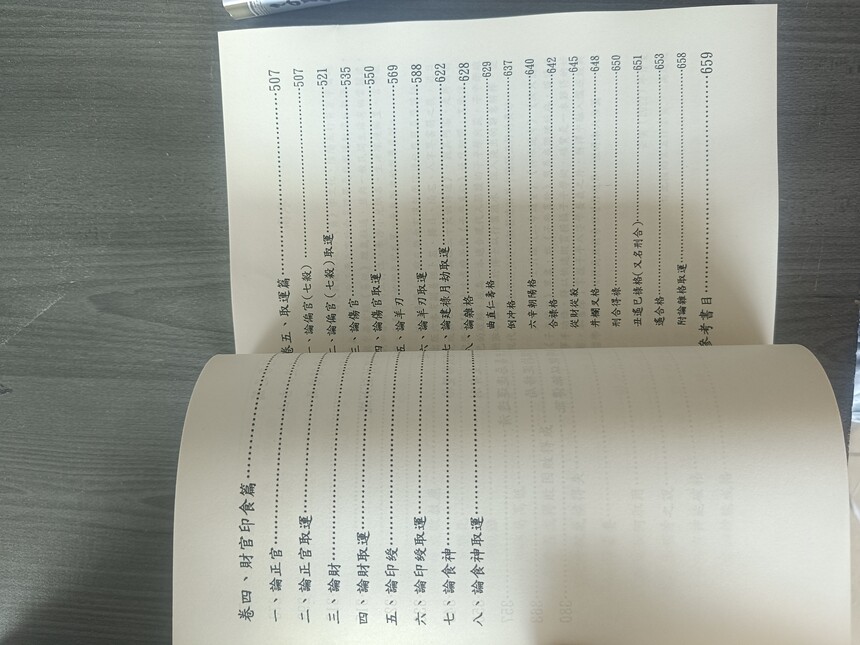 卷四、財官印食篇
一、論正官
二、論正官取運
三、論財
四、論財取運
五、論印綬
六、論印綬取運
七、論食神
八、論食神取運
卷五、取運篇……507
一、論偏官(七殺)……507
二、論偏官(七殺)取運……521
三、論傷官……535
四、論傷官取運……550
五、論羊刃……569
六、論羊刃取運……588
七、論建祿月劫取運……622
八、論雜格……628
曲直仁壽格……629
倒沖格……637
六辛朝陽格……640
合祿格……642
從財從殺……645
井欄叉格……648
刑合得祿……650
丑遙巳祿格(又名刑合)……651
遙合格……653
附論雜格取運……658
參考書目……659